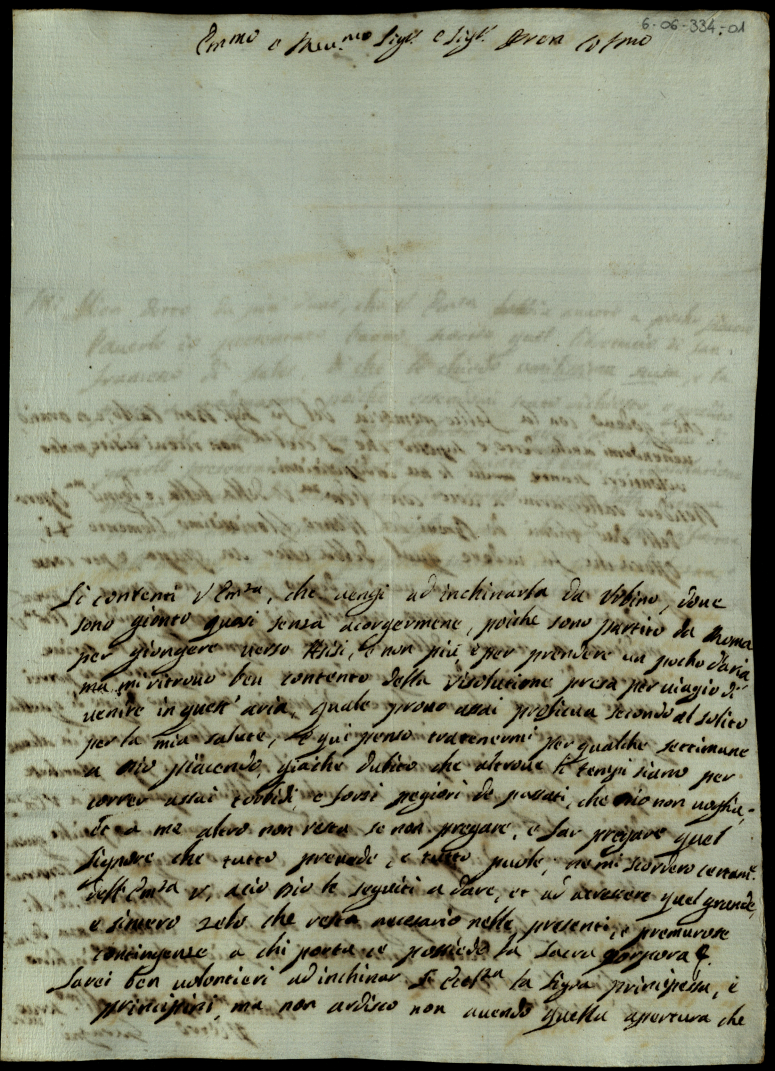 6-06-334-01
Em.mo e Rev.mo Sig.r e Sig.r Pron Col.mo
Si contenti V Em.za, che vengi ad inchinarla da Urbino, dove
sono gionto quasi senza acorgermene, poiche sono partito da Roma
per giongere verso Asisi, e non più e per prendere un pocho d'aria
ma mi ritrovo ben contento della risolutione presa per viagio di
venire in quest'aria, quale provo assai proficua secondo al solito
per la mia salute, e qui penso trattenermi per qualche settimane
a Dio piacendo, giache dubito che altrove li tempi siano per
correr assai torbidi, e forsi pegiori de passati, che Dio non voglia,
et a me altro non resta se non pregare, e far pregare quel
Signore che tutto prevede, e tutto puole, ne mi scordero certam.e
dell'Em.za V, acio Dio le seguiti a dare, et ad acrescere quel grande,
e sincero zelo che resta necesario nelle presenti, e premurose
contingenze a chi porta e possiede la sacra porpora.
Sarei ben volontieri ad inchinar S Ecel.za la Sig.ra principessa, e
principini, ma non ardisco non avendo quella apertura che